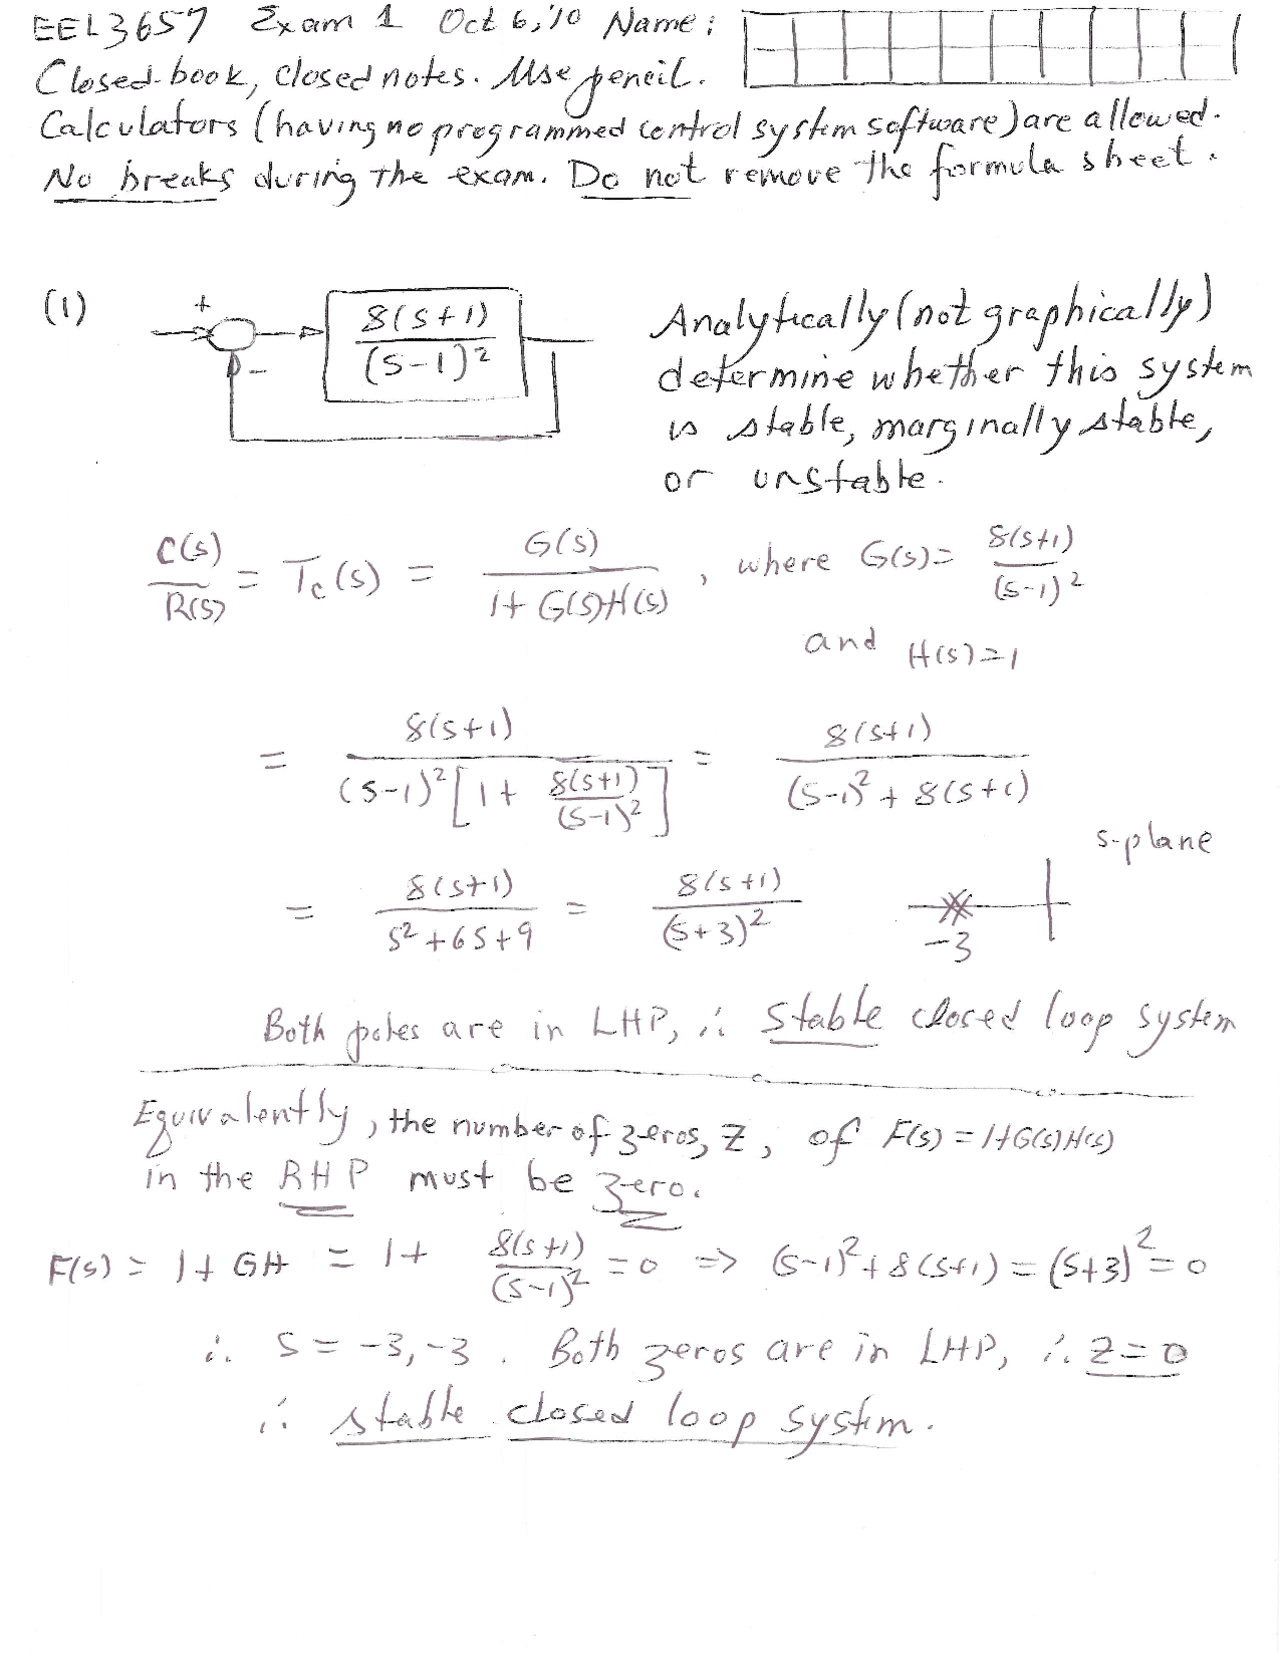 EEL3657 Exam 1 Oct 6,'10 Name:
Closed-book, closed notes. Use pencil.
Calculators (having no programmed control system software) are allowed.
No breaks during the exam. Do not remove the formula sheet.
(1) + - 8(s+1) / (s-1)²
Analytically (not graphically)
determine whether this system
is stable, marginally stable,
or unstable.
C(s)/R(s) = Tc(s) = G(s) / 1+G(s)H(s) , where G(s)= 8(s+1)/(s-1)²
and H(s)=1
= 8(s+1) / (s-1)²[1+ 8(s+1)/(s-1)²] = 8(s+1) / (s-1)²+8(s+1)
s-plane
= 8(s+1) / s²+6s+9 = 8(s+1) / (s+3)²
-3
Both poles are in LHP, ∴ stable closed loop system
Equivalently, the number of zeros, Z, of F(s) = 1+G(s)H(s)
in the RHP must be zero.
F(s) = 1+GH = 1+ 8(s+1)/(s-1)² = 0 => (s-1)²+8(s+1) = (s+3)² = 0
∴ s = -3, -3. Both zeros are in LHP, ∴ Z=0
∴ stable closed loop system.